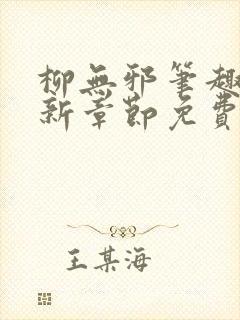 柳無邪筆趣
新章節免費
王某海